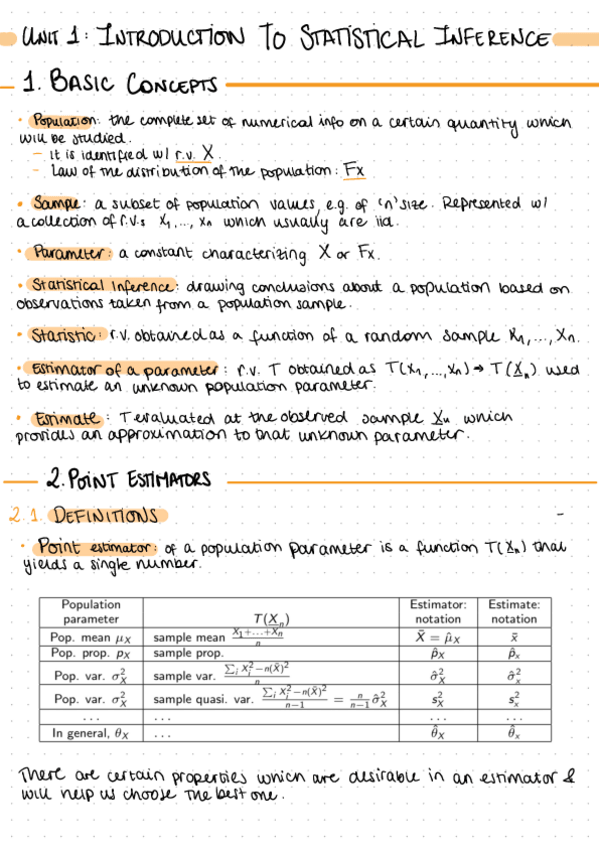 UNIT 1: INTRODUCTION TO STATISTICAL INFERENCE
1. BASIC CONCEPTS
• Population: the complete set of numerical info on a certain quantity which
will be studied.
– it is identified w/ r.v. X.
– Law of the distribution of the population: Fx
• Sample: a subset of population values, e.g. of 'n' size. Represented w/
a collection of r.v.s X₁,..., Xn which usually are iid.
• Parameter: a constant characterizing X or Fx.
• Statistical Inference: drawing conclusions about a population based on
observations taken from a population sample.
• Statistic: r.v. obtained as a function of a random sample X₁,..., Xn.
• Estimator of a parameter: r.v. T obtained as T(X₁,...,Xn) → T(X̲n) used
to estimate an unknown population parameter.
• Estimate: T evaluated at the observed sample x̲n which
provides an approximation to that unknown parameter.
2. POINT ESTIMATORS
2.1. DEFINITIONS –
• Point estimator: of a population parameter is a function T(X̲n) that
yields a single number.
Population parameter | T(X̲n) | Estimator: notation | Estimate: notation
Pop. mean μX | sample mean (X₁+...+Xn)/n | X̄ = μ̂X | x̄
Pop. prop. pX | sample prop. | p̂X | p̂x
Pop. var. σ²X | sample var. (∑i X²i − n(X̄)²)/n | σ̂²X | σ̂²x
Pop. var. σ²X | sample quasi. var. (∑i X²i − n(X̄)²)/(n−1) = n/(n−1) σ̂²X | s²X | s²x
... | ... | ... | ...
In general, θX | ... | θ̂X | θ̂x
There are certain properties which are desirable in an estimator &
will help us choose the best one.